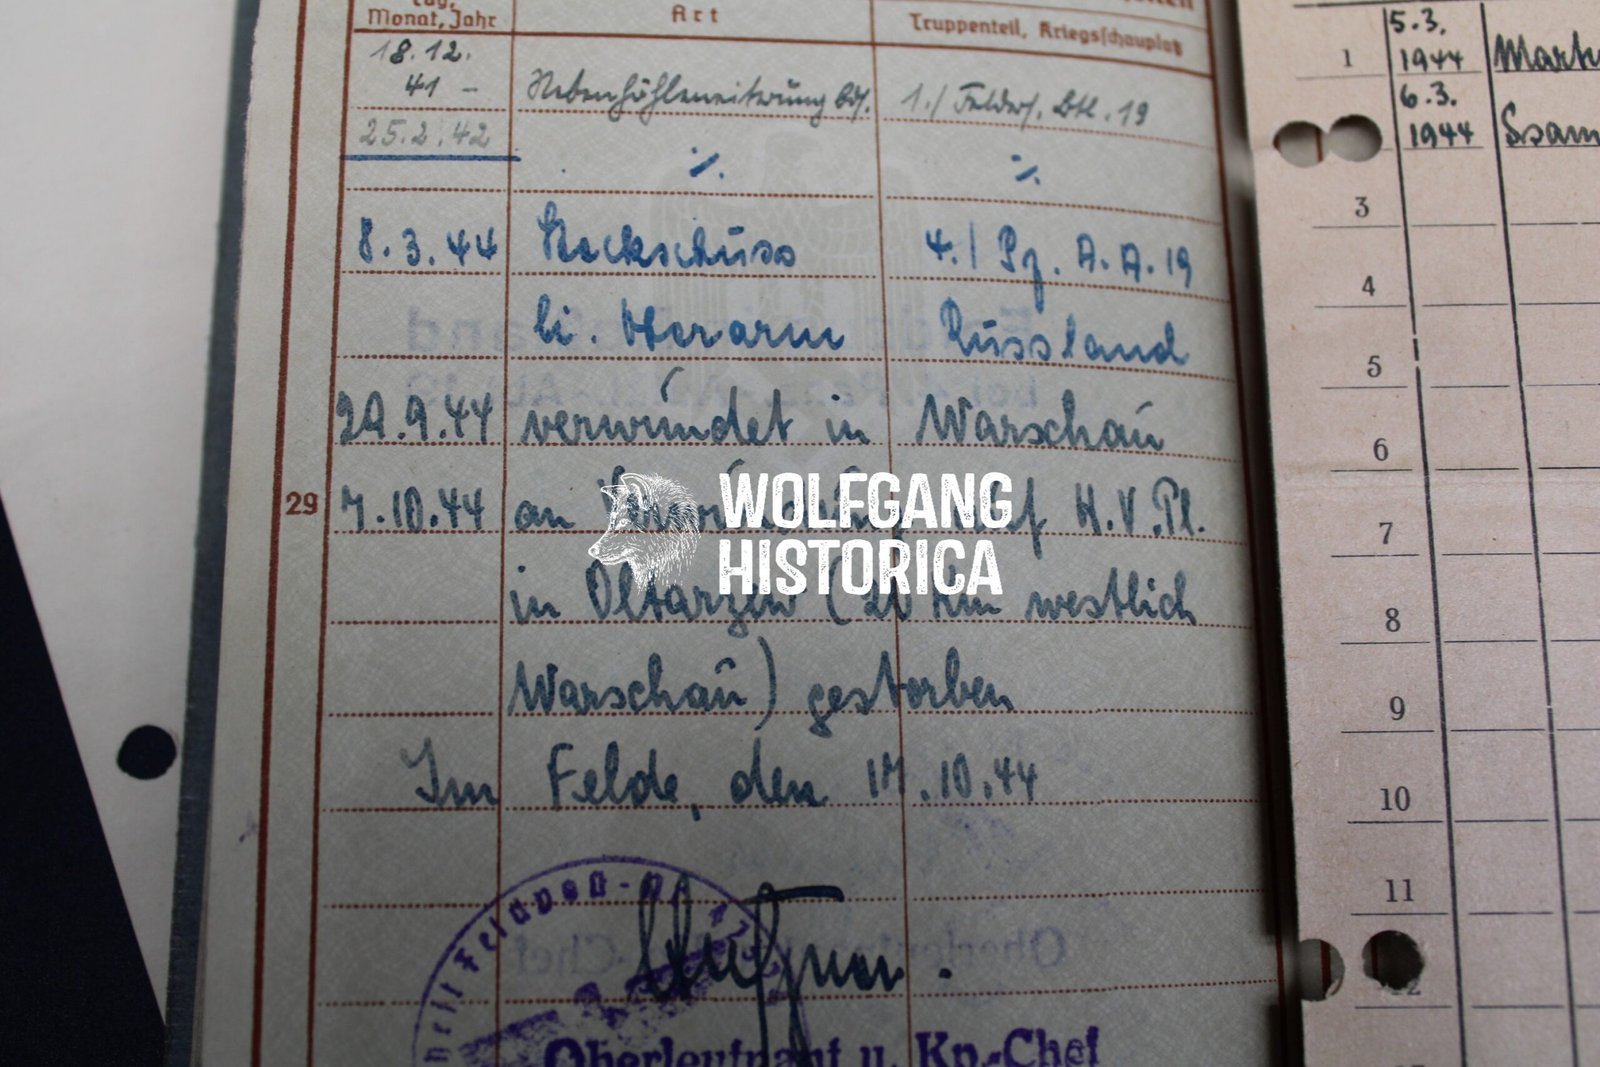 Monat, Jahr
Art
Truppenteil, Kriegsschauplatz
18.12.
41 -
25.2.42
Nebenhöhleneiterung bds.
1./ Felders. Btl. 19
8.3.44 Steckschuss 4./ Pz. A.A. 19
li. Oberarm Russland
verwundet in Warschau
29 7.10.44 an H.V.Pl.
in Oltarzew (20 km westlich
Warschau) gestorben
Im Felde, den 17.10.44
Oberleutnant u. Kp.-Chef
WOLFGANG
HISTORICA
5.3.
1 1944
6.3.
1944
3
4
5
6
7
8
9
10
11
12